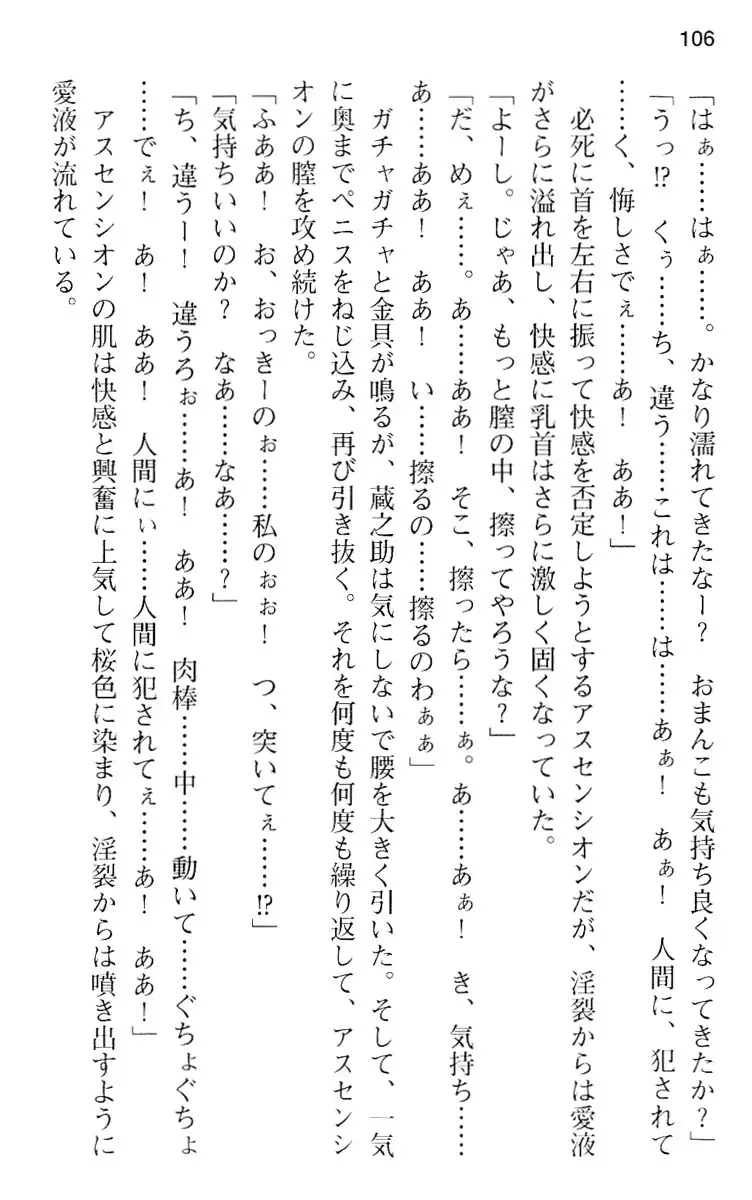 106
「はぁ……はぁ……。かなり濡れてきたなー？　おまんこも気持ち良くなってきたか？」
「うっ!?　くぅ……ち、違う……これは……は……あぁ！　あぁ！　人間に、犯されて
……く、悔しさでぇ……あ！　ああ！」
　必死に首を左右に振って快感を否定しようとするアスセンシオンだが、淫裂からは愛液
がさらに溢れ出し、快感に乳首はさらに激しく固くなっていた。
「よーし。じゃあ、もっと膣の中、擦ってやろうな？」
「だ、めぇ……。あ……ああ！　そこ、擦ったら……ぁ。あ……あぁ！　き、気持ち……
あ……ああ！　ああ！　い……擦るの……擦るのわぁぁ」
　ガチャガチャと金具が鳴るが、蔵之助は気にしないで腰を大きく引いた。そして、一気
に奥までペニスをねじ込み、再び引き抜く。それを何度も何度も繰り返して、アスセンシ
オンの膣を攻め続けた。
「ふああ！　お、おっきーのぉ……私のぉぉ！　つ、突いてぇ……!?」
「気持ちいいのか？　なあ……なあ……？」
「ち、違うー！　違うろぉ……あ！　ああ！　肉棒……中……動いて……ぐちょぐちょ
……でぇ！　あ！　ああ！　人間にぃ……人間に犯されてぇ……あ！　ああ！」
　アスセンシオンの肌は快感と興奮に上気して桜色に染まり、淫裂からは噴き出すように
愛液が流れている。